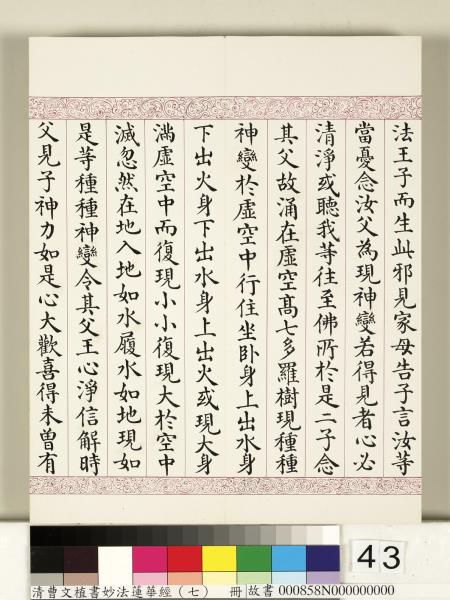 法王子而生此邪見家母告子言汝等
當憂念汝父為現神變若得見者心必
清淨或聽我等往至佛所於是二子念
其父故涌在虛空高七多羅樹現種種
神變於虛空中行住坐臥身上出水身
下出火身下出水身上出火或現大身
滿虛空中而復現小小復現大於空中
滅忽然在地入地如水履水如地現如
是等種種神變令其父王心淨信解時
父見子神力如是心大歡喜得未曾有
43
清曹文植書妙法蓮華經（七） 冊 故書 000858N000000000